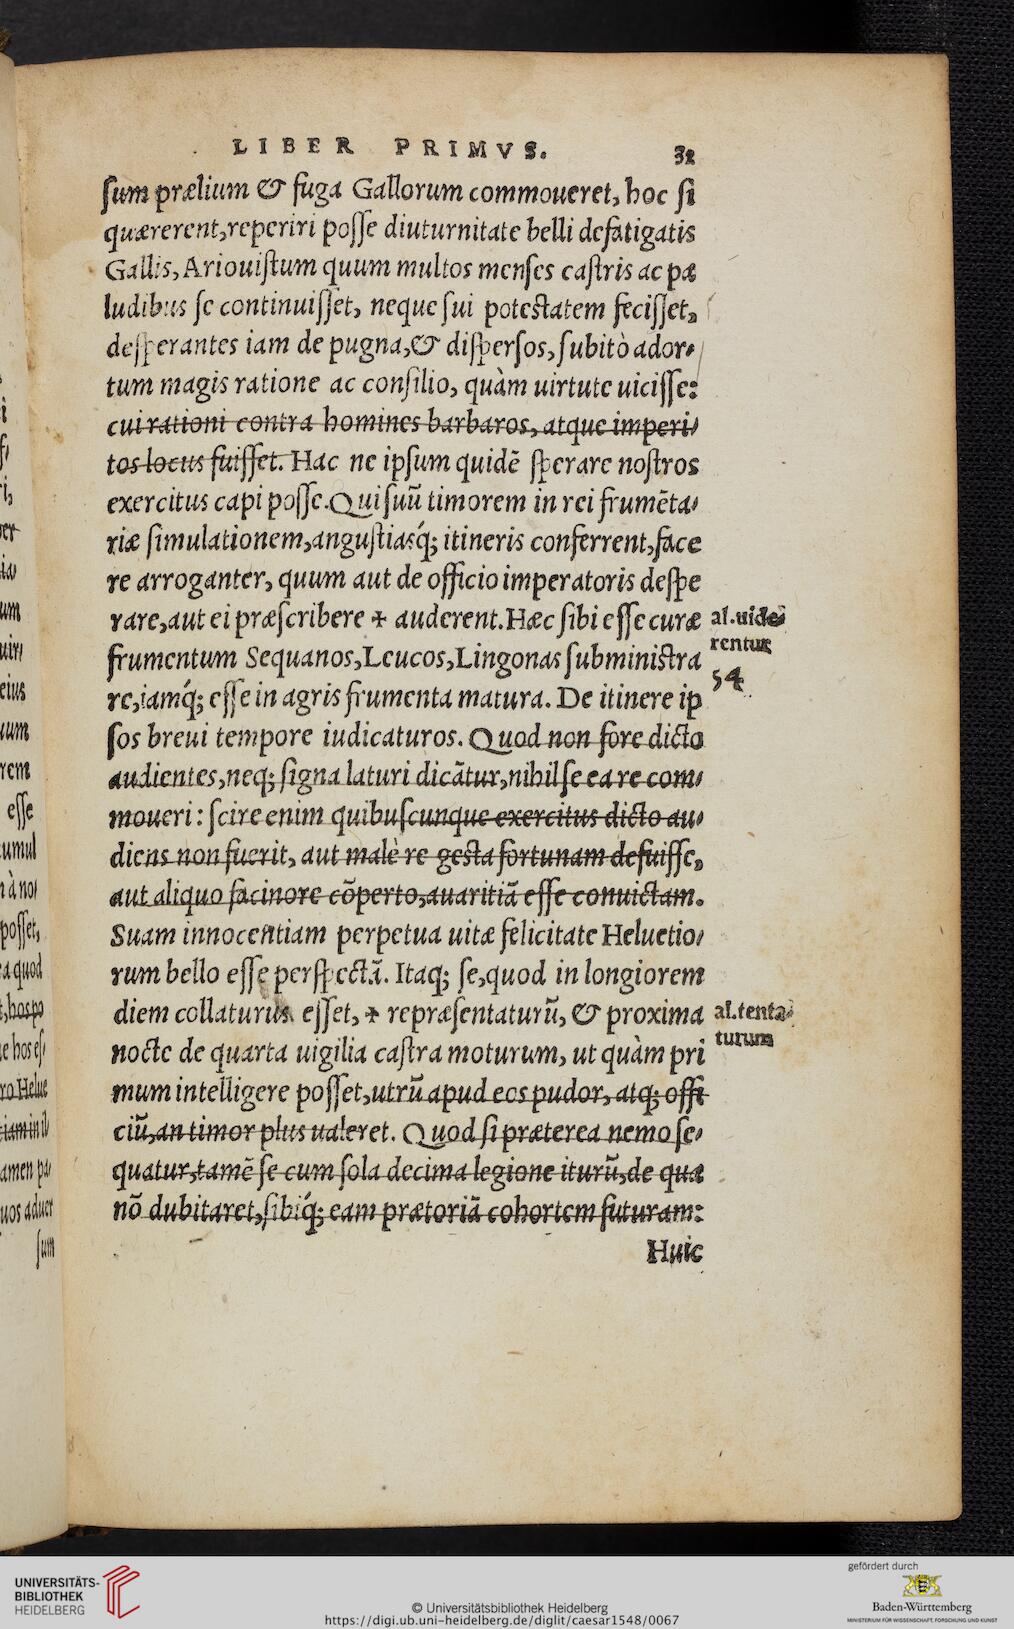 LIBER PRIMVS. 32
sum prælium & fuga Gallorum commoueret, hoc si
quærerent, reperiri posse diuturnitate belli defatigatis
Gallis, Ariouistum quum multos menses castris ac pæ
ludibus se continuisset, neque sui potestatem fecisset,
desperantes iam de pugna, & dispersos, subitò ador⸗
tum magis ratione ac consilio, quàm uirtute uicisse:
cui rationi contra homines barbaros, atque imperi⸗
tos locus fuisset. Hac ne ipsum quidẽ sperare nostros
exercitus capi posse. Qui suũ timorem in rei frumẽta⸗
riæ simulationem, angustiasq́; itineris conferrent, face
re arroganter, quum aut de officio imperatoris despe
rare, aut ei præscribere + auderent. Hæc sibi esse curæ
al. uide⸗
rentur
frumentum Sequanos, Leucos, Lingonas subministra
54
re, iamq́; esse in agris frumenta matura. De itinere ip
sos breui tempore iudicaturos. Quod non fore dicto
audientes, neq; signa laturi dicãtur, nihil se ea re com⸗
moueri: scire enim quibuscunque exercitus dicto au⸗
diens non fuerit, aut malè re gesta fortunam defuisse,
aut aliquo facinore cõperto, auaritiã esse conuictam.
Suam innocentiam perpetua uitæ felicitate Heluetio⸗
rum bello esse perspectã. Itaq; se, quod in longiorem
diem collaturus esset, + repræsentaturũ, & proxima
al. tenta⸗
turum
nocte de quarta uigilia castra moturum, ut quàm pri
mum intelligere posset, utrũ apud eos pudor, atq; offi
ciũ, an timor plus ualeret. Quod si præterea nemo se⸗
quatur, tamẽ se cum sola decima legione iturũ, de qua
nõ dubitaret, sibiq́; eam prætoriã cohortem futuram:
Huic
ro Helue
tiam in il⸗
amen pa⸗
uos aduer
sum
UNIVERSITÄTS-
BIBLIOTHEK
HEIDELBERG
© Universitätsbibliothek Heidelberg
https://digi.ub.uni-heidelberg.de/diglit/caesar1548/0067
gefördert durch
Baden-Württemberg
MINISTERIUM FÜR WISSENSCHAFT, FORSCHUNG UND KUNST